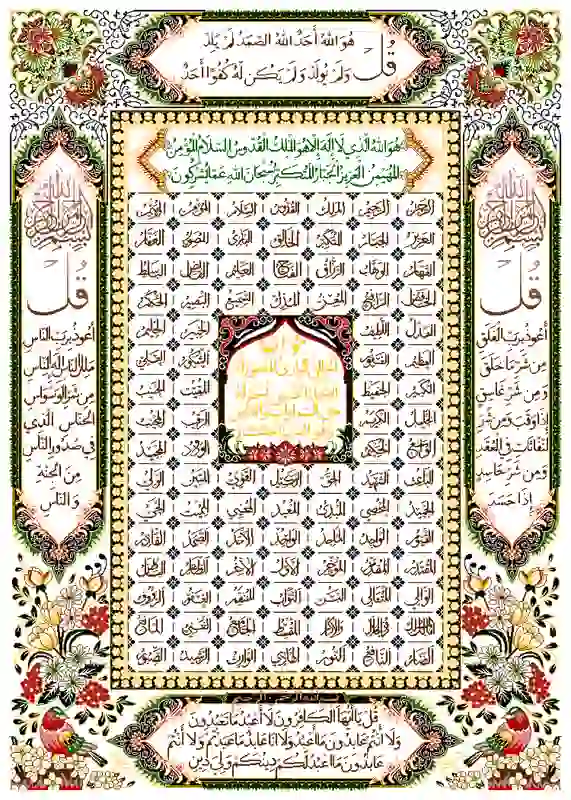 قُلْ هُوَ اللهُ أَحَدٌ اللهُ الصَّمَدُ لَمْ يَلِدْ
وَلَمْ يُولَدْ وَلَمْ يَكُن لَهُ كُفُوًا أَحَدٌ
هُوَ اللهُ الَّذِي لَا إِلَهَ إِلَّا هُوَ المَلِكُ القُدُّوسُ السَّلَامُ المُؤْمِنُ
المُهَيْمِنُ العَزِيزُ الجَبَّارُ المُتَكَبِّرُ سُبْحَانَ اللهِ عَمَّا يُشْرِكُونَ
الرحمن الرحيم الملك القدوس السلام المؤمن المهيمن
العزيز الجبار المتكبر الخالق البارئ المصور الغفار
القهار الوهاب الرزاق الفتاح العليم القابض الباسط
الخافض الرافع المعز المذل السميع البصير الحكم
العدل اللطيف الخبير الحليم
العظيم الغفور الشكور العلي
الكبير الحفيظ المقيت الحسيب
الجليل الكريم الرقيب المجيب
الواسع الحكيم الودود المجيد
الباعث الشهيد الحق الوكيل القوي المتين الولي
الحميد المحصي المبدئ المعيد المحيي المميت الحي
القيوم الواجد الماجد الواحد الأحد الصمد القادر
المقتدر المقدم المؤخر الأول الآخر الظاهر الباطن
الوالي المتعالي البر التواب المنتقم العفو الرؤوف
مالك الملك ذو الجلال والإكرام المقسط الجامع الغني المانع
الضار النافع النور الهادي الوارث الرشيد الصبور
بسم الله الرحمن الرحيم
قُلْ
أَعُوذُ بِرَبِّ الفَلَقِ
مِن شَرِّ مَا خَلَقَ
وَمِن شَرِّ غَاسِقٍ
إِذَا وَقَبَ وَمِن شَرِّ
النَّفَّاثَاتِ فِي العُقَدِ
وَمِن شَرِّ حَاسِدٍ
إِذَا حَسَدَ
بسم الله الرحمن الرحيم
قُلْ
أَعُوذُ بِرَبِّ النَّاسِ
مَلِكِ النَّاسِ إِلَهِ النَّاسِ
مِن شَرِّ الوَسْوَاسِ
الخَنَّاسِ الَّذِي يُوَسْوِسُ
فِي صُدُورِ النَّاسِ
مِنَ الجِنَّةِ
وَالنَّاسِ
بسم الله الرحمن الرحيم
قُلْ يَا أَيُّهَا الكَافِرُونَ لَا أَعْبُدُ مَا تَعْبُدُونَ
وَلَا أَنتُمْ عَابِدُونَ مَا أَعْبُدُ وَلَا أَنَا عَابِدٌ مَا عَبَدتُّمْ وَلَا أَنتُمْ
عَابِدُونَ مَا أَعْبُدُ لَكُمْ دِينُكُمْ وَلِيَ دِينِ